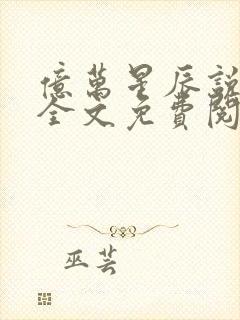 億萬星辰說
全文免費閱
巫芸